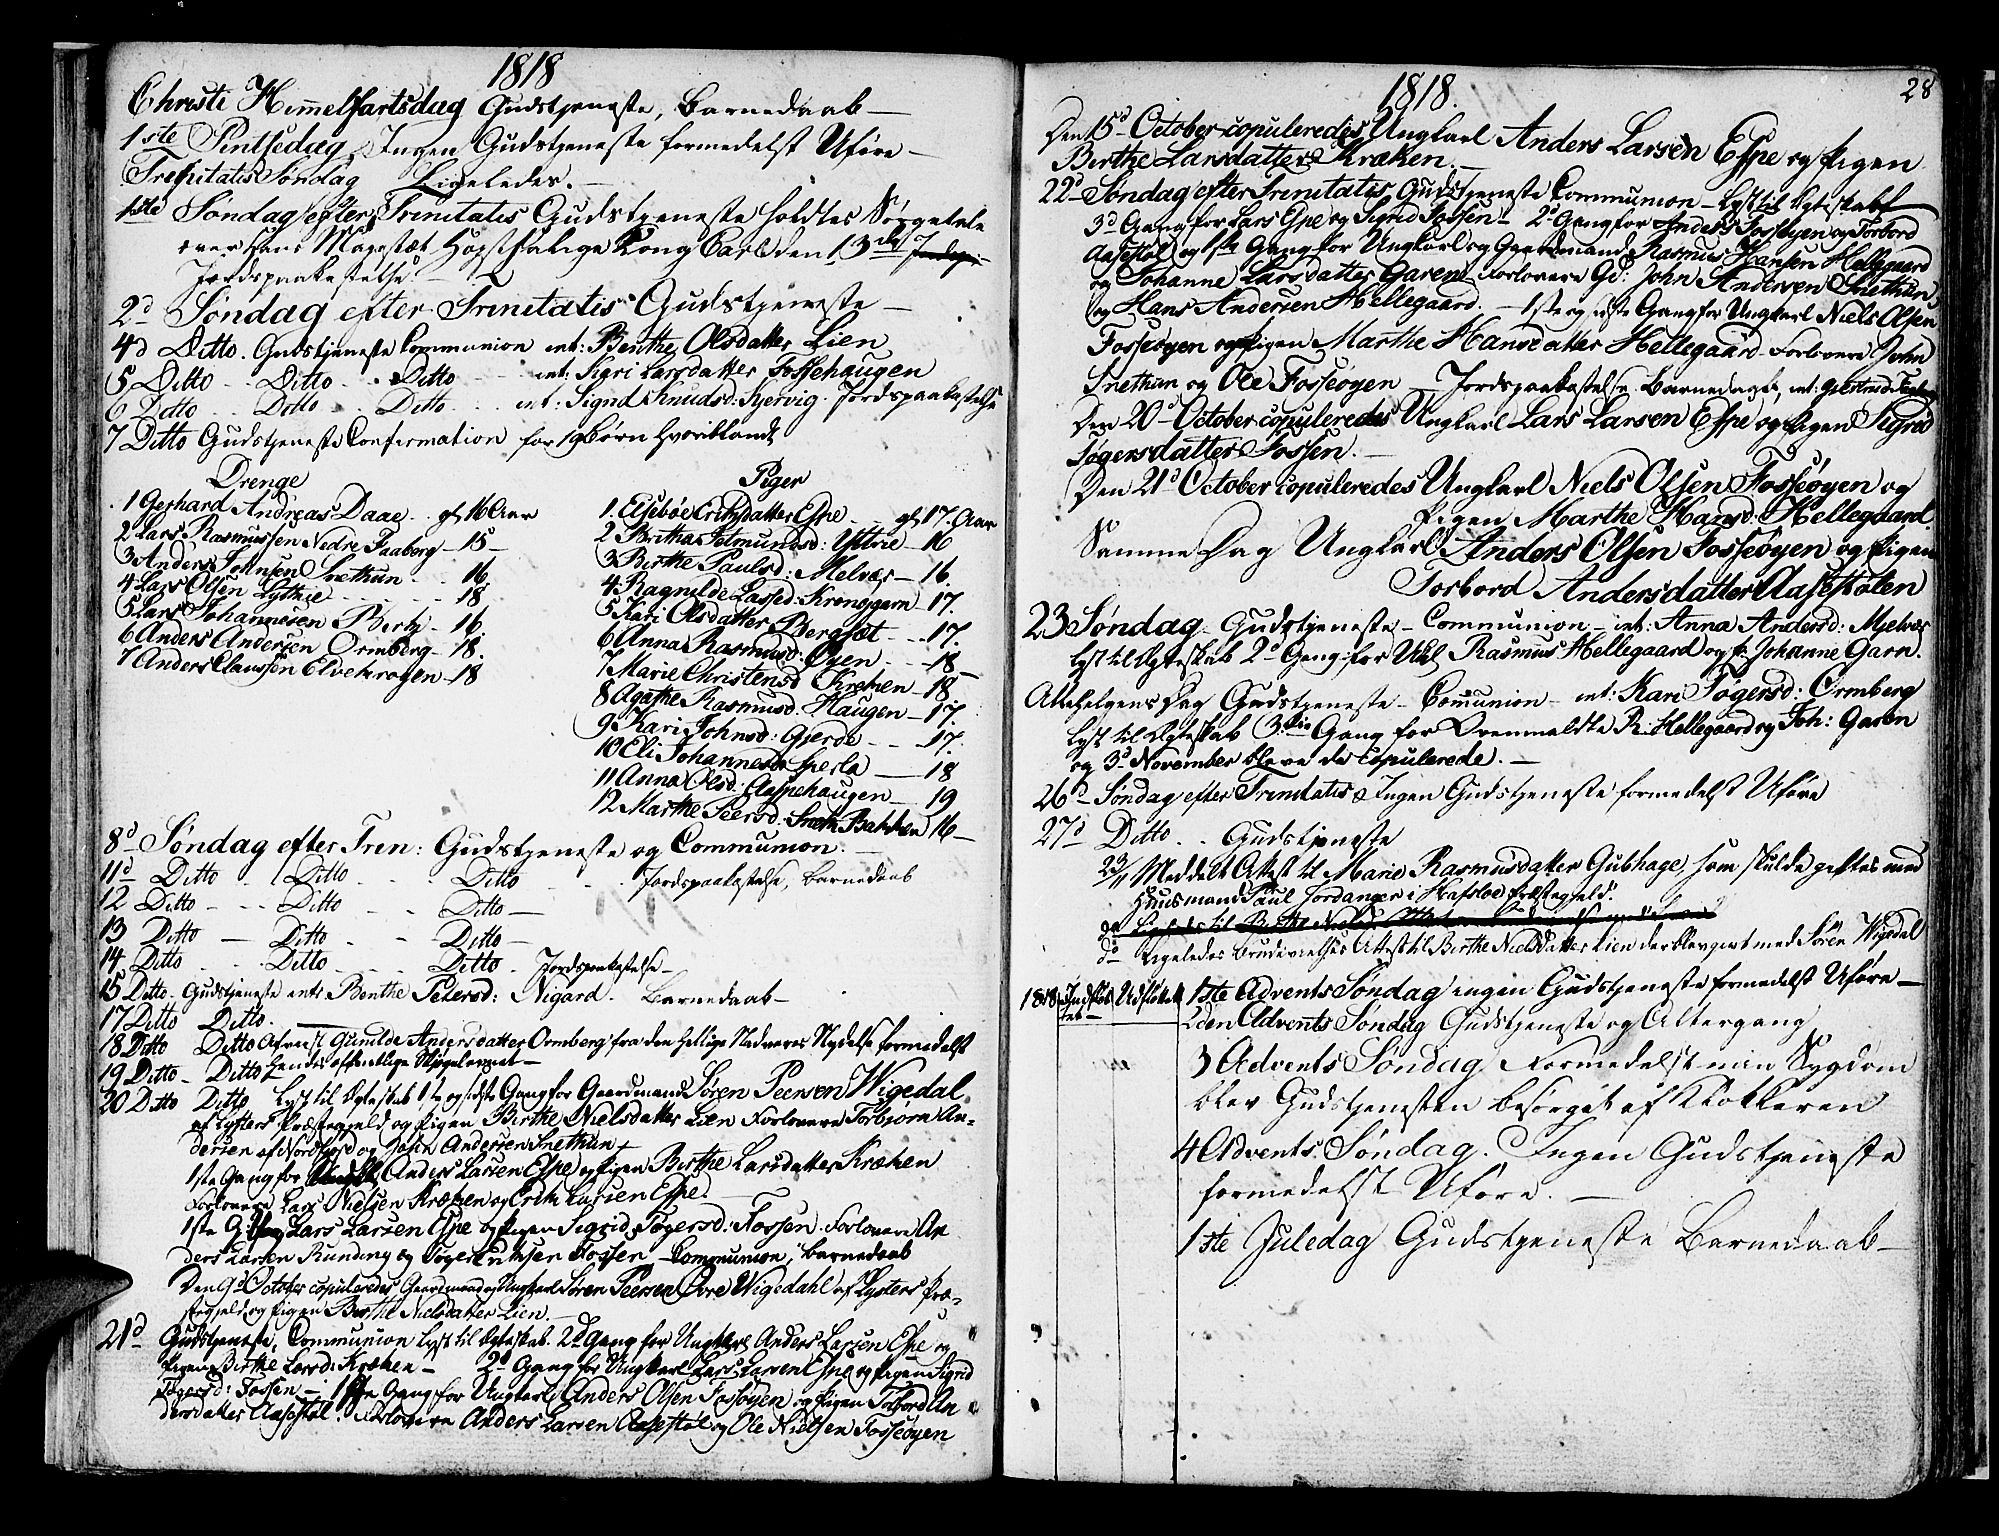 1818
Christi Himmelfartsdag Gudstjeneste, Barnedaab —
1ste Pintsedag, Ingen Gudstjeneste formedelst Uføre —
Trinitatis Søndag Ligeledes. —
1ste Søndag efter Trinitatis Gudstjeneste holdtes Sørgetale
over hans Majestæt Høystsalige Kong Carl den 13de
Jordspaakastelse —
2d Søndag efter Trinitatis Gudstjeneste —
4d Ditto. Gudstjeneste Communion int: Benthe Olsdatter Lien
5 Ditto - - Ditto - - Ditto int: Sigri Larsdatter Fossehaugen
6 Ditto - - Ditto - - Ditto - - int: Sigrid Knudsd: Kjervig. Jordspaakastelse
7 Ditto Gudstjeneste Confirmation for 19 Børn hvoriblandt
Drenge
1 Gerhard Andreas Daae - gl. 16 Aar
2 Lars Rasmussen Nedre Faaberg - 15 -
3 Anders Johnsen Snethun - - 16
4 Lars Olsen - - - 18
5 Lars Johannesen Berty - 16
6 Anders Andersen Ormberg - 18.
7 Anders Claussen Elvekrogen - 18
Piger
1. Elsebøe Erichsdatter Espe - gl. 17. Aar
2 Brithe Ytterlie - 16
3 Birthe Paulsd: Melvær - 16.
4 Ragnilde Lassed: Kronggern - 17.
5 Kari Olsdatter Bergsæt - - 17.
6 Anna Rasmusd: Øyen - - 18
7 Marie Christensd Kræken - 18
8 Agathe Rasmusd: Haugen - 17.
9 Kari Johnsd: Gjerde - - 17.
10 Eli Johannesd Sperla - 18
11 Anna Olsd: Aaspehaugen - 19
12 Marthe Peersd: Bakken 16 -
8d Søndag efter Tren: Gudstjeneste og Communion. —
11d Ditto - - Ditto - - Ditto - - Jordspaakastelse, Barnedaab
12 Ditto - - Ditto - - Ditto —
13 Ditto — Ditto - - Ditto —
14 Ditto - - Ditto - - Ditto - Jordspaakastelse —
15 Ditto. Gudstjeneste intr: Benthe Petersd: Nigard. Barnedaab —
17 Ditto Ditto. —
18 Ditto Ditto Afviist Gunilde Andersdatter Ormberg fra den hellige Nadveres Nydelse formedelst
19 Ditto - Ditto hendes offentlige
20 Ditto Ditto Lyst til Ægteskab 1ste og sidste Gang for Gaardmand Søren Peersen Wigedal
af Lysters Præstegjeld og Pigen Birthe Nielsdatter Lien Forlovere Torbjørn An-
dersen af Nordfjord og John Andersen Snethun
1ste Gang for Anders Larsen Espe og Pigen Birthe Larsdatter Kræken
Forlovere Lars Nielsen Kræken og Erik Larsen Espe. —
1ste Gang Lars Larsen Espe og Pigen Sigrid Tøgersd: Fossen. Forlovere An
ders Larsen Runding og Tøger Knutsen Fossen — Communion, Barnedaab
Den 9d October copuleredes Gaardmand og Ungkarl Søren Peersen Øvre Wigedahl af Lysters Præ-
stegjeld og Pigen Berthe Nielsdatter Lien. —
21d Gudstjeneste, Communion Lyst til Ægteskab. 2d Gang for Ungkarl Anders Larsen Espe og
Pigen Birthe Larsd: Kræken — 2d Gang for Ungkarl Lars Larsen Espe og Pigen Sigrid
Tøgersd: Fossen — 1ste Gang for Ungkarl Anders Olsen Fossøyen og Pigen Torbord An
dersdatter Aasestøl. Forlovere Anders Larsen Aasestøl og Ole Nielsen Fosseøyen
1818. 28
Den 15d October copuleredes Ungkarl Anders Larsen Espe og Pigen
Birthe Larsdatter Kræken. —
22d Søndag efter Trinitatis, Gudstjeneste Communion — Lyst til Ægteskabs
3d Gang for Lars Espe og Sigrid Fossen — 2d Gang for Anders Fosseøyen og Torbord
Aasestøl og 1ste Gang for Ungkarl og Gaardmand Rasmus Hansen Hellegaard
og Johanne Larsdatter Garen Forlovere Gd: John Andersen Snethun
og Hans Andersen Hellegaard. — 1ste og sidste Gang for Ungkarl Niels Olsen
Fosseøyen og Pigen Marthe Hansdatter Hellegaard. Forlovere John
Snethun og Ole Fosseøyen — Jordspaakastelse, Barnedaab, int:
Den 20d October copuleredes Ungkarl Lars Larsen Espe og Pigen Sigrid
Tøgersdatter Fossen. —
Den 21d October copuleredes Ungkarl Niels Olsen Fosseøyen og
Pigen Marthe Hansd: Hellegaard.
Samme Dag Ungkarl Anders Olsen Fosseøyen og Pigen
Torbord Andersdatter Aasestølen
23 Søndag — Gudstjeneste — Communion — int: Anna Andersd: Mjelvær
Lyst til Ægteskab 2d Gang for Ukl Rasmus Hellegaard og P: Johanne Garn.
Allehelgens Dag Gudstjeneste — Comunion — int: Kari Tøgersd: Ormberg
Lyst til Ægteskab 3die Gang for Ovenmeldte R: Hellegaard og Joh: Garen
og 3d November bleve de copulerede. —
26d Søndag efter Trinitatis, Ingen Gudstjeneste formedelst Uføre
27d Ditto. - Gudstjeneste
23/11 Meddelt Attest til Marie Rasmusdatter Gubhage, som skulde giftes med
Huusmand Paul Jordanger i Hafsloe Præstegjeld.
do Ligeledes til Birthe Nielsd:
do Ligeledes Brudevielses Attest til Birthe Nielsdatter Lien der blev givt med Søren Wigedal
1818. Indfløt tet — Udflöttet 1ste Advents Søndag ingen Gudstjeneste formedelst Uføre —
2den Advents Søndag Gudstjeneste og Altergang
3 Advents Søndag Formedelst min Sygdom
blev Gudstjenesten besørget af Klokkeren
4 Advents. Søndag. Ingen Gudstjeneste
formedelst Uføre. —
1ste Juledag Gudstjeneste Barnedaab —